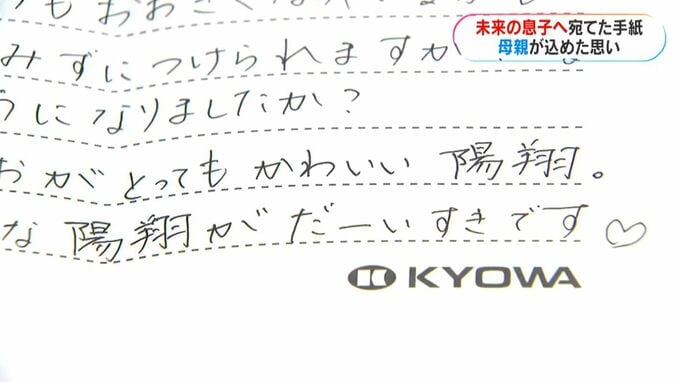 未来の息子へ宛てた手紙
母親が込めた思い
もおおきくな
みずにつけられますか
うになりましたか？
おがとってもかわいい 陽翔。
な 陽翔がだーいすきです♡
KYOWA